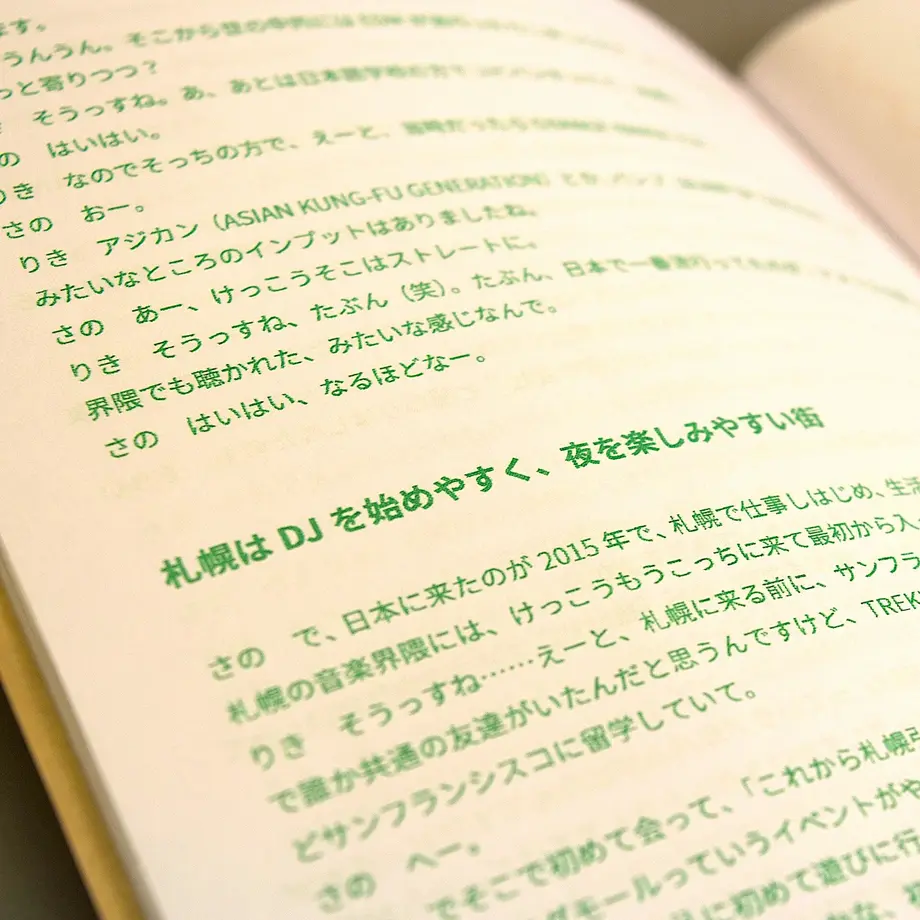 ます。
うんうん。そこから世の中的には
っと寄りつつ？
そうっすね。あ、あとは日本語学校の方で
の　はいはい。
りき　なのでそっちの方で、えーと、当時だったら
さの　おー。
りき　アジカン（ASIAN KUNG-FU GENERATION）とか、バンプ
みたいなところのインプットはありましたね。
さの　あー、けっこうそこはストレートに。
りき　そうっすね、たぶん（笑）。たぶん、日本で一番流行ってたのが
界隈でも聴かれた、みたいな感じなんで。
さの　はいはい、なるほどなー。
札幌は DJ を始めやすく、夜を楽しみやすい街
さの　で、日本に来たのが 2015 年で、札幌で仕事しはじめ、生活
札幌の音楽界隈には、けっこうもうこっちに来て最初から入っ
りき　そうっすね……えーと、札幌に来る前に、サンフラ
で誰か共通の友達がいたんだと思うんですけど、TREK
どサンフランシスコに留学していて。
さの　へー。
でそこで初めて会って、「これから札幌引
グモールっていうイベントがや
に初めて遊びに行